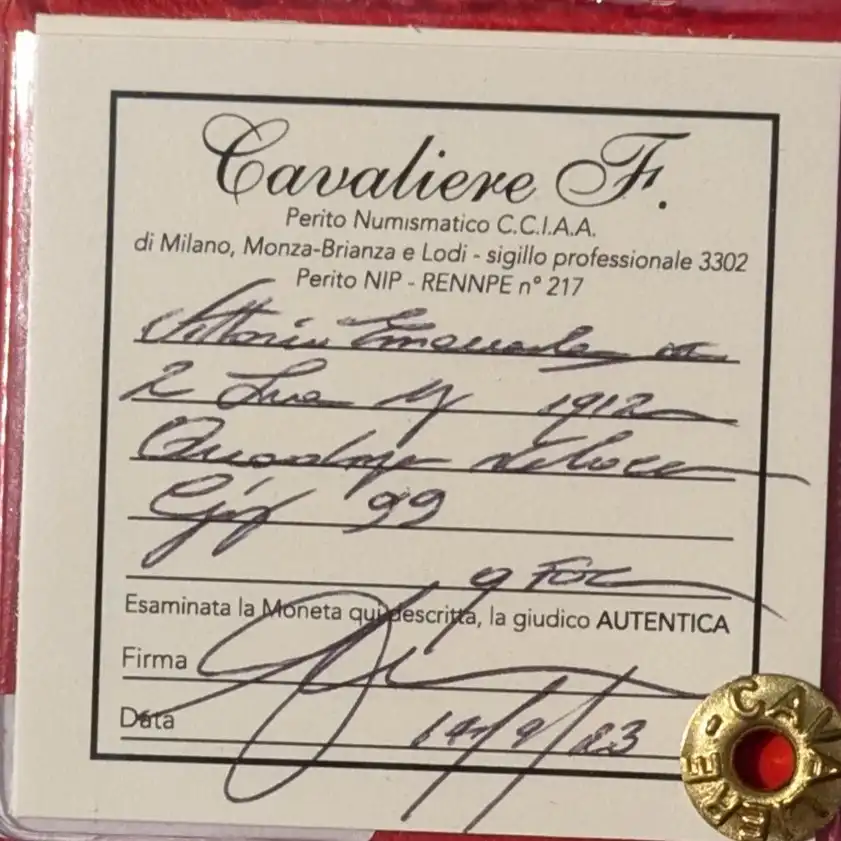 Cavaliere F.
Perito Numismatico C.C.I.A.A.
di Milano, Monza-Brianza e Lodi - sigillo professionale 3302
Perito NIP - RENNPE n° 217
Vittorio Emanuele III
2 Lire 1912
Quadriga Veloce
Gig 99
q FDC
Esaminata la Moneta qui descritta, la giudico AUTENTICA
Firma
Data 14/9/23
CAVALIERE